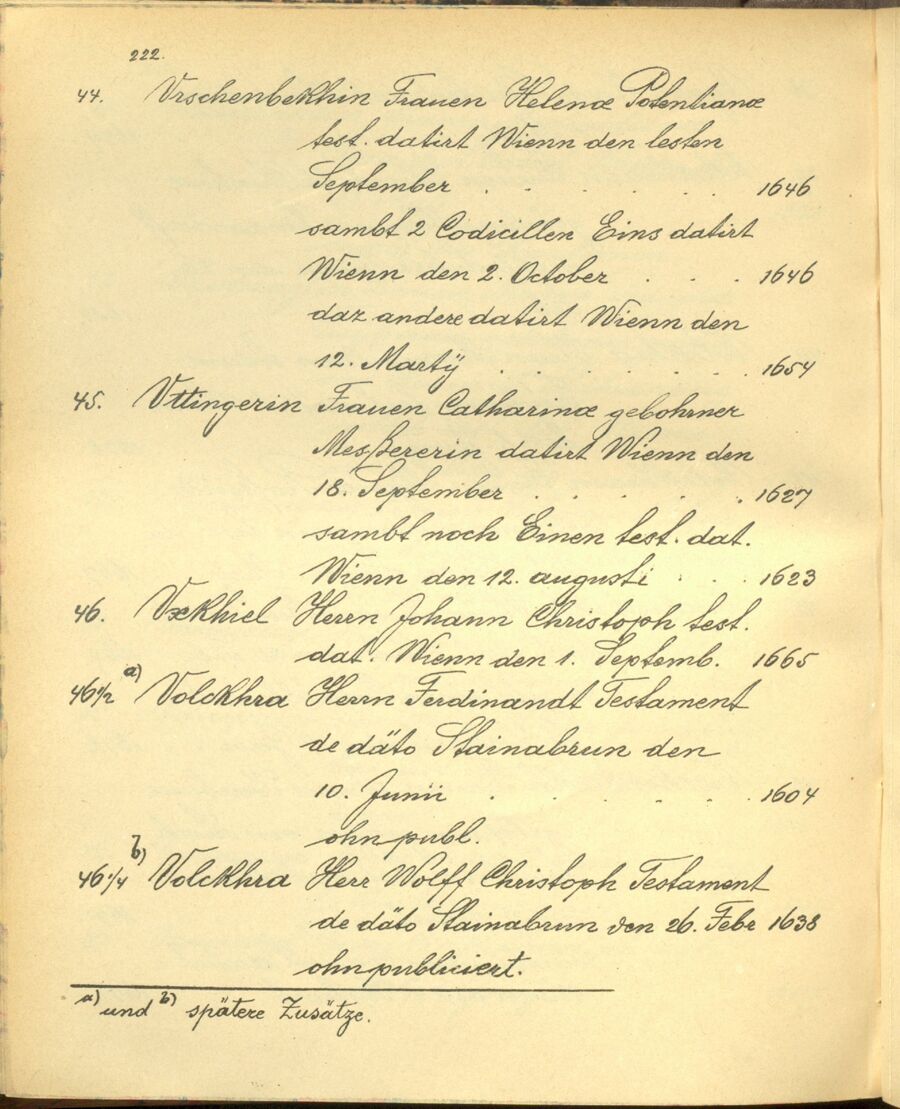 222.
44. Vrschenbekhin Frauen Helenæ Potentianæ
test. datirt Wienn den lesten
September . . . . . . 1646
sambt 2 Codicillen Eins datirt
Wienn den 2. October . . . 1646
daz andere datirt Wienn den
12. Martÿ . . . . . . 1654
45. Vttingerin Frauen Catharinæ gebohrner
Mesßererin datirt Wienn den
18. September . . . . . 1627
sambt noch Einen test. dat.
Wienn den 12. augusti . . . 1623
46. Vxkhiel Herrn Johann Christoph test.
dat. Wienn den 1. Septemb. 1665
46 1/2 a) Volckhra Herrn Ferdinandt Testament
de däto Stainabrun den
10. Junii . . . . . . 1604
ohn publ.
46 1/4 b) Volckhra Herr Wolff Christoph Testament
de däto Stainabrun den 26. Febr 1638
ohn publiciert.
a) und b) spätere Zusätze.